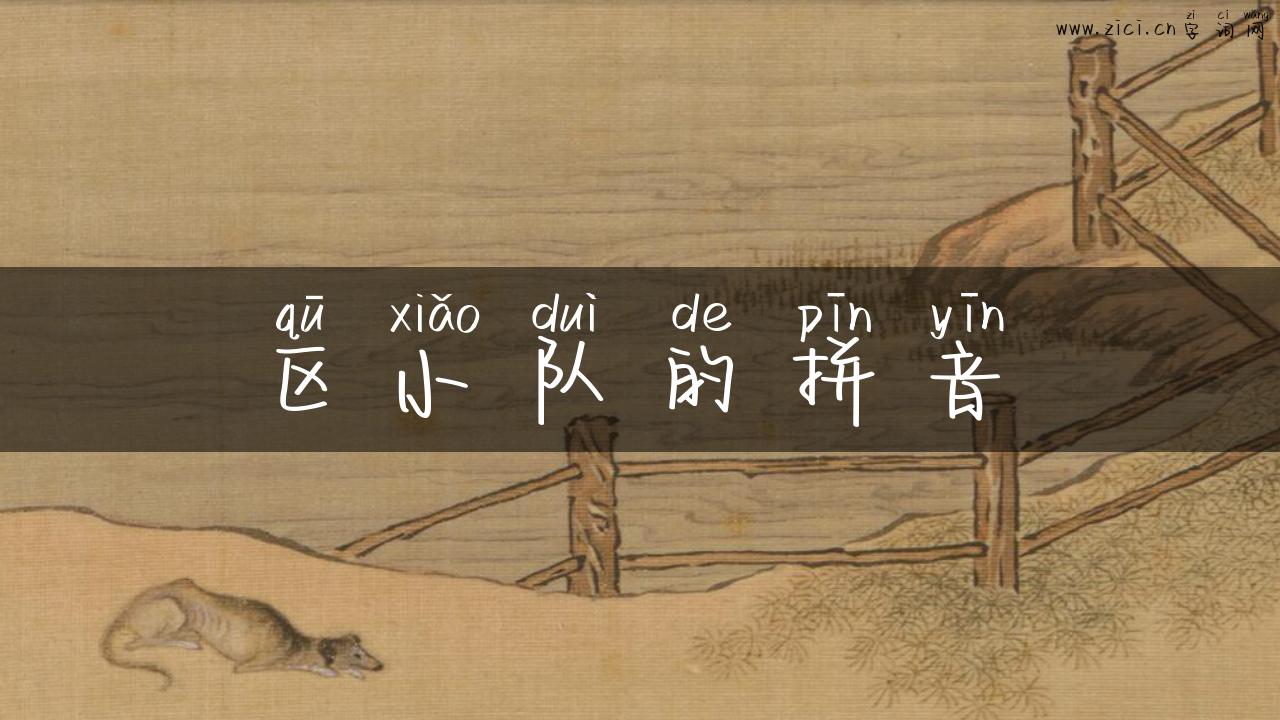 zi ci wang
www.zici.cn 字词网
qū xiǎo duì de pīn yīn
区小队的拼音